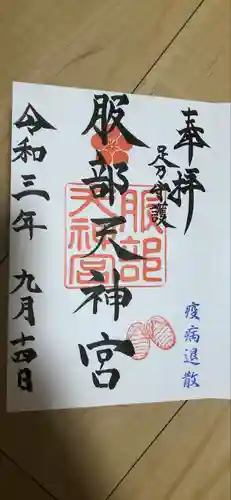 奉拝
足乃守護
服部天神宮
服部
天神宮
令和三年 九月十四日
疫病退散